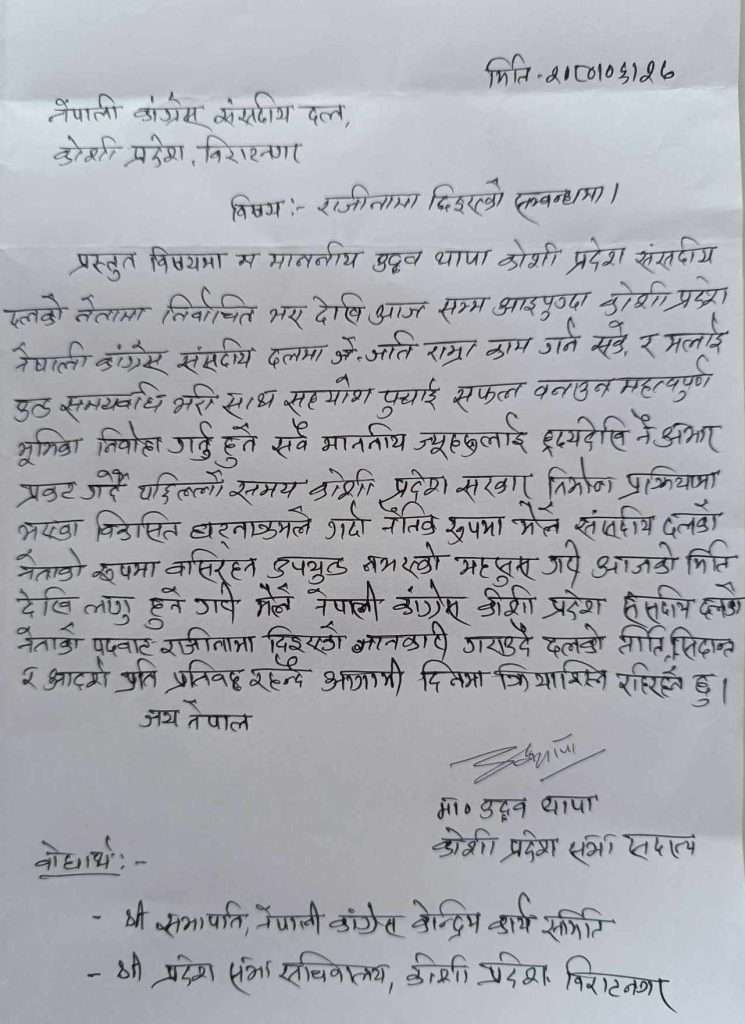 मिति - २०८०।०६।२७
नेपाली कांग्रेस संसदीय दल,
कोशी प्रदेश, विराटनगर
विषय :- राजीनामा दिइएको सम्बन्धमा।
प्रस्तुत विषयमा म माननीय उद्धव थापा कोशी प्रदेश संसदीय
दलको नेतामा निर्वाचित भए देखि आज सम्म आइपुग्दा कोशी प्रदेश
नेपाली कांग्रेस संसदीय दलमा जे-जति राम्रा काम गर्न सकें, र मलाई
उक्त समयावधि भरी साथ सहयोग पुर्‍याई सफल बनाउन महत्वपुर्ण
भूमिका निर्वाह गर्नु हुने सबै माननीय ज्यूहरुलाई ह्रदयदेखि नै आभार
प्रकट गर्दै पछिल्लो समय कोशी प्रदेश सरकार निर्माण प्रक्रियामा
भएका विकसित घटनाक्रमले गर्दा नैतिक रुपमा मैले संसदीय दलको
नेताको रुपमा बसिरहन उपयुक्त नभएको महसुस गरी आजको मिति
देखि लागु हुने गरी मैले नेपाली कांग्रेस कोशी प्रदेश संसदीय दलको
नेताको पदबाट राजीनामा दिइएको जानकारी गराउदै दलको नीति, सिद्दान्त
र आदर्श प्रति प्रतिवद्द रहन्दै आगामी दिनमा क्रियाशिल रहिरहने छु।
जय नेपाल
मा० उद्धव थापा
कोशी प्रदेश सभा सदस्य
वोधार्थ :-
- श्री सभापति, नेपाली कांग्रेस केन्द्रिय कार्य समिति
- श्री प्रदेश सभा सचिवालय, कोशी प्रदेश विराटनगर